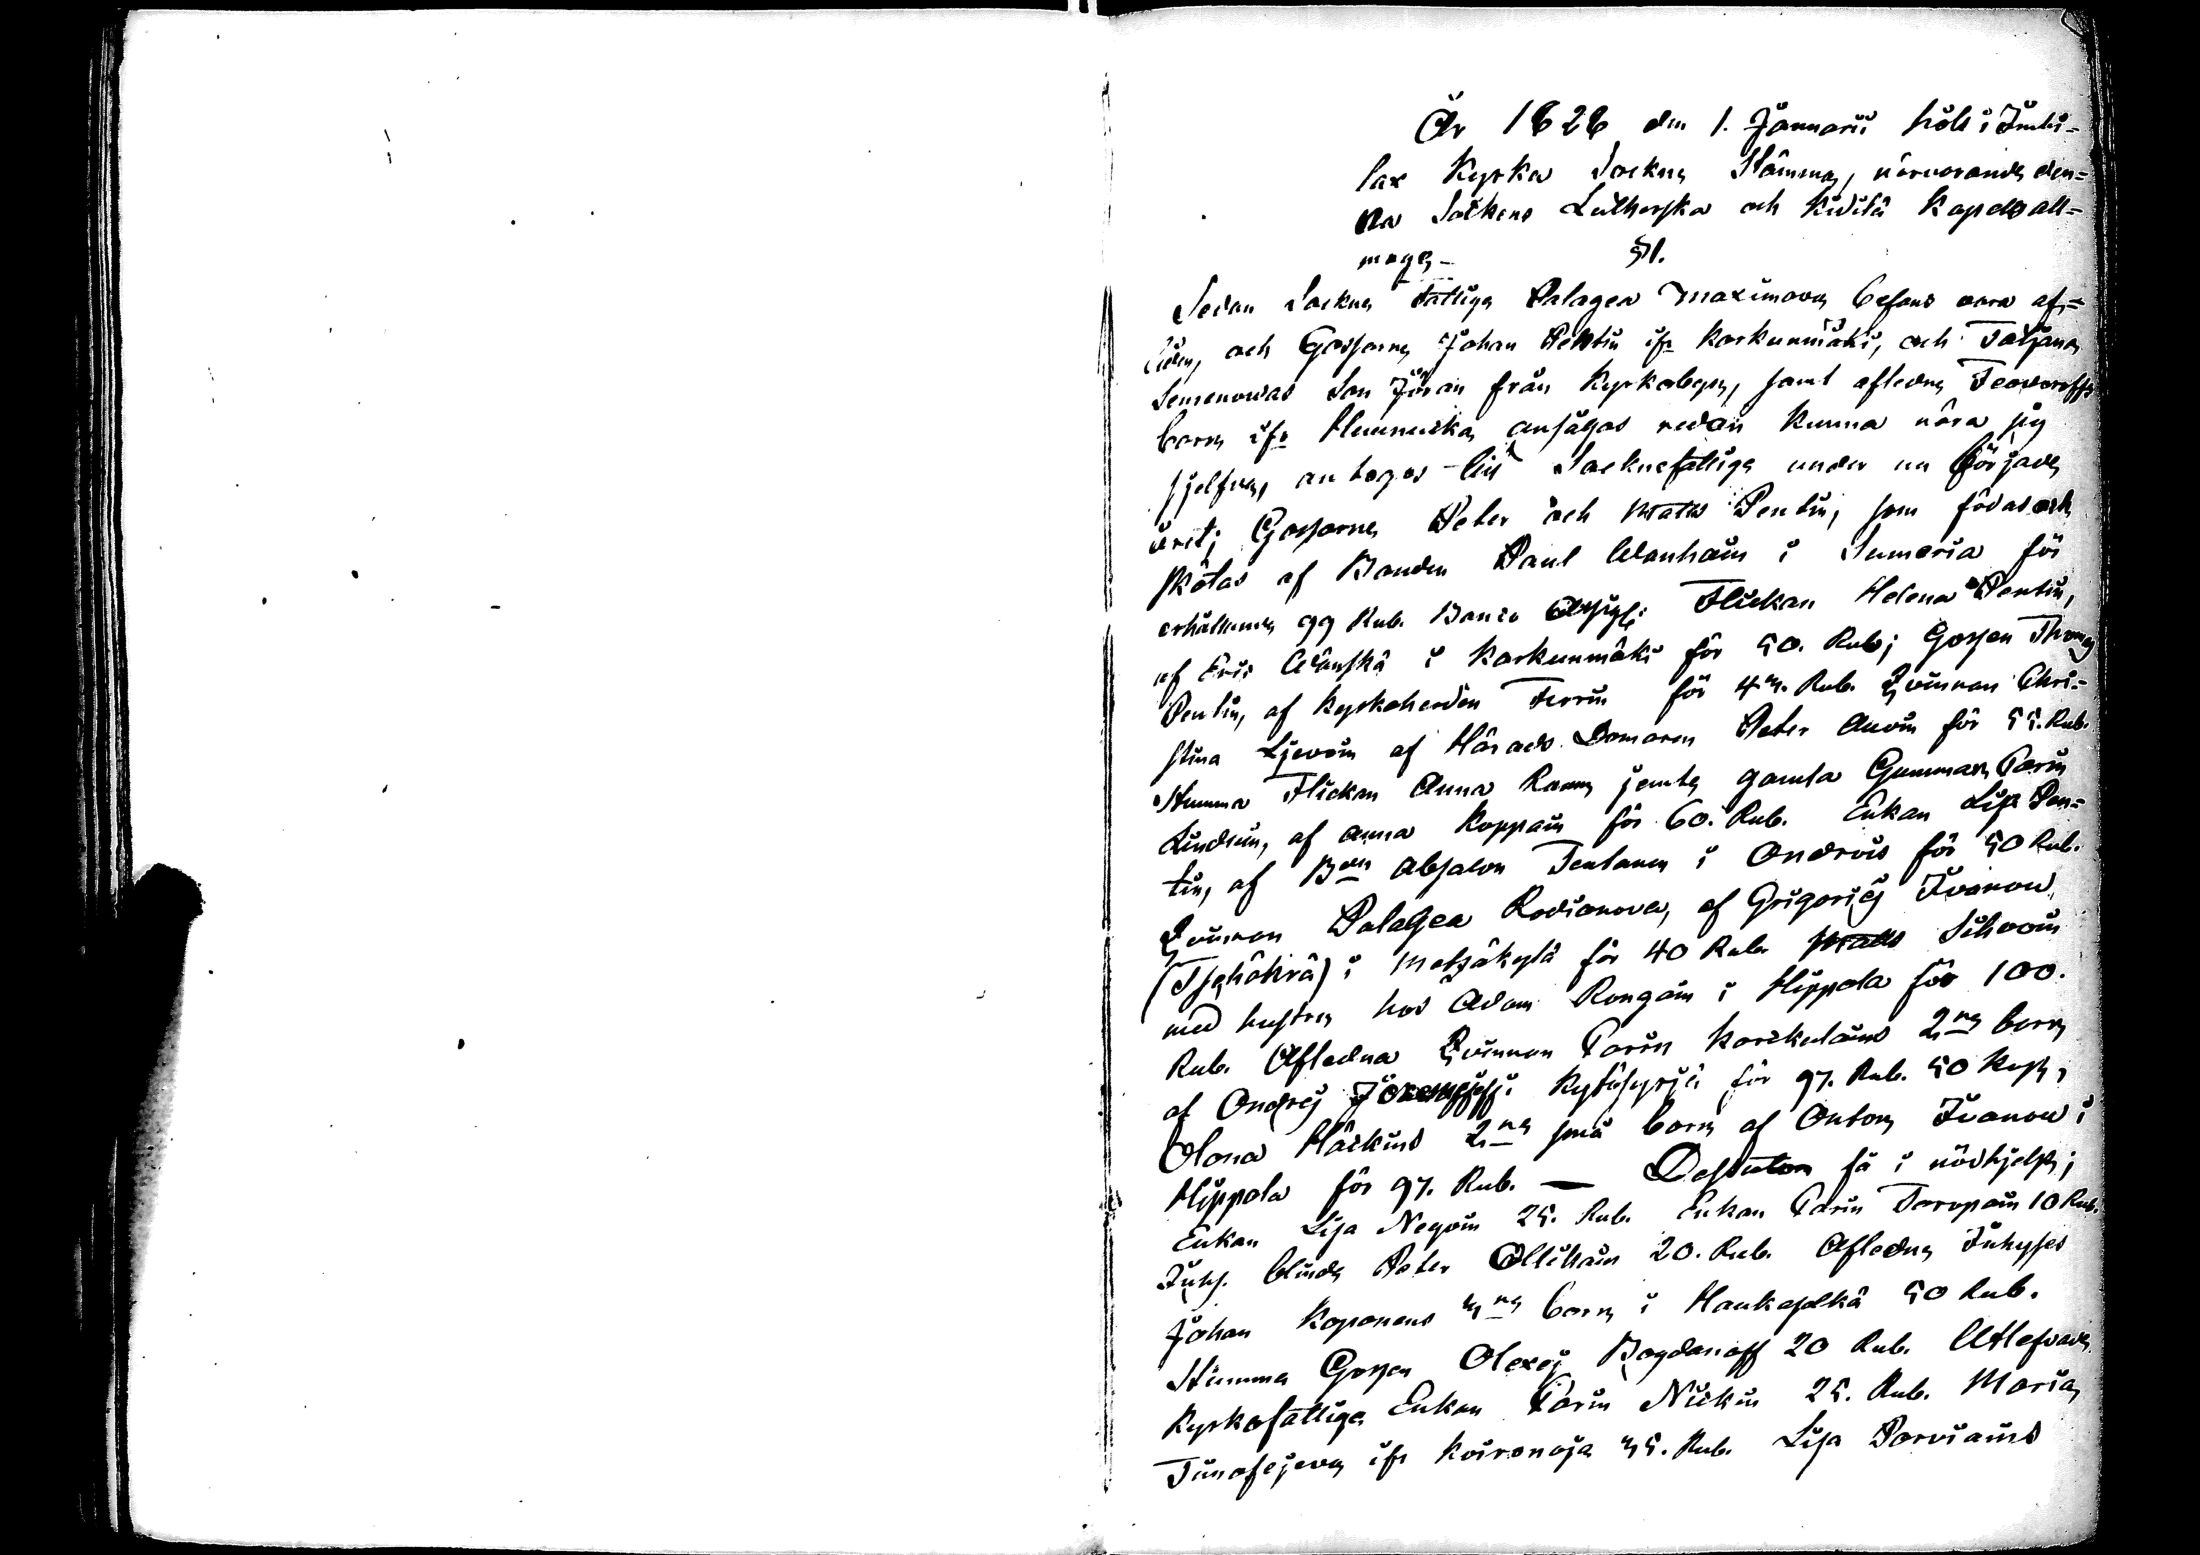 År 1828 den 1. Januarii hölls i Imbi-
lax Kyrka Sockne Stämma, närvarande den-
na Sockens Lutherska och Kidilä Kapells all-
moge_ §1.
Sedan Sockne fattiga Palagea Maximova befans vara af-
liden, och Gossarne Johan Pentin ifr Korkunmäki, och Tatjana
Semenowas Son Jöran från Kyrkobyn, samt afledne Feodoroffs
barn ifr Hunnucka ansågos redan kunna nära sig
sjelfva, antogos till Socknefattiga under nu började
året; Gossarne Peter och Matts Pentin, som födas och
skötas af Bonden Paul Wanhain i Sumeria för
erhållande 99 Rub. Banco Flickan Helena Pentin,
af Eric i Korkunmäki för 50. Rub; Gossen Thomas
Pentin, af Kyrkoherden för 45. Rub. Qvinnan Chri-
stina Ljevoin af Härads Domaren Peter Auvin för 55. Rub.
Stumma Flickan Anna jemte gamla Gumman Carin
af Anna Koppain för 60. Rub. Enkan Lisa Pen-
tin, af Bon Absalon Tentanen i Ondrois för 50 Rub.
Qvinnan Palagea Rodionova, af Grigorij Ivanow
(Tschökrä) i Metzäkylä för 40 Rub. Matts Sihvoin
med hustru hos Adam Rongain i Hippola för 100.
Rub. Afledna Qvinnan Carin 2ne barn
af Ondrej i Kytösyrjä för 97. Rub. 50 Kop,
Olona Härkins 2ne små barn af Anton Ivanow i
Hippola för 97. Rub. — Dessutom få i nödhjelp;
Enkan Lisa Negoin 25. Rub. Enkan Carin Toropain 10 Rub.
Inhs. blinde Peter Ollikain 20. Rub. Afledne Inhyses
Johan Koponens 3ne barn i Haukaselkä 50 Rub.
Stumma Gossen Olexej Bogdanoff 20 Rub. Utlefvade
Kyrkofattiga Enkan Carin 25. Rub. Maria
Timofejeva ifr Koironoja 35. Rub. Lisa Parviains